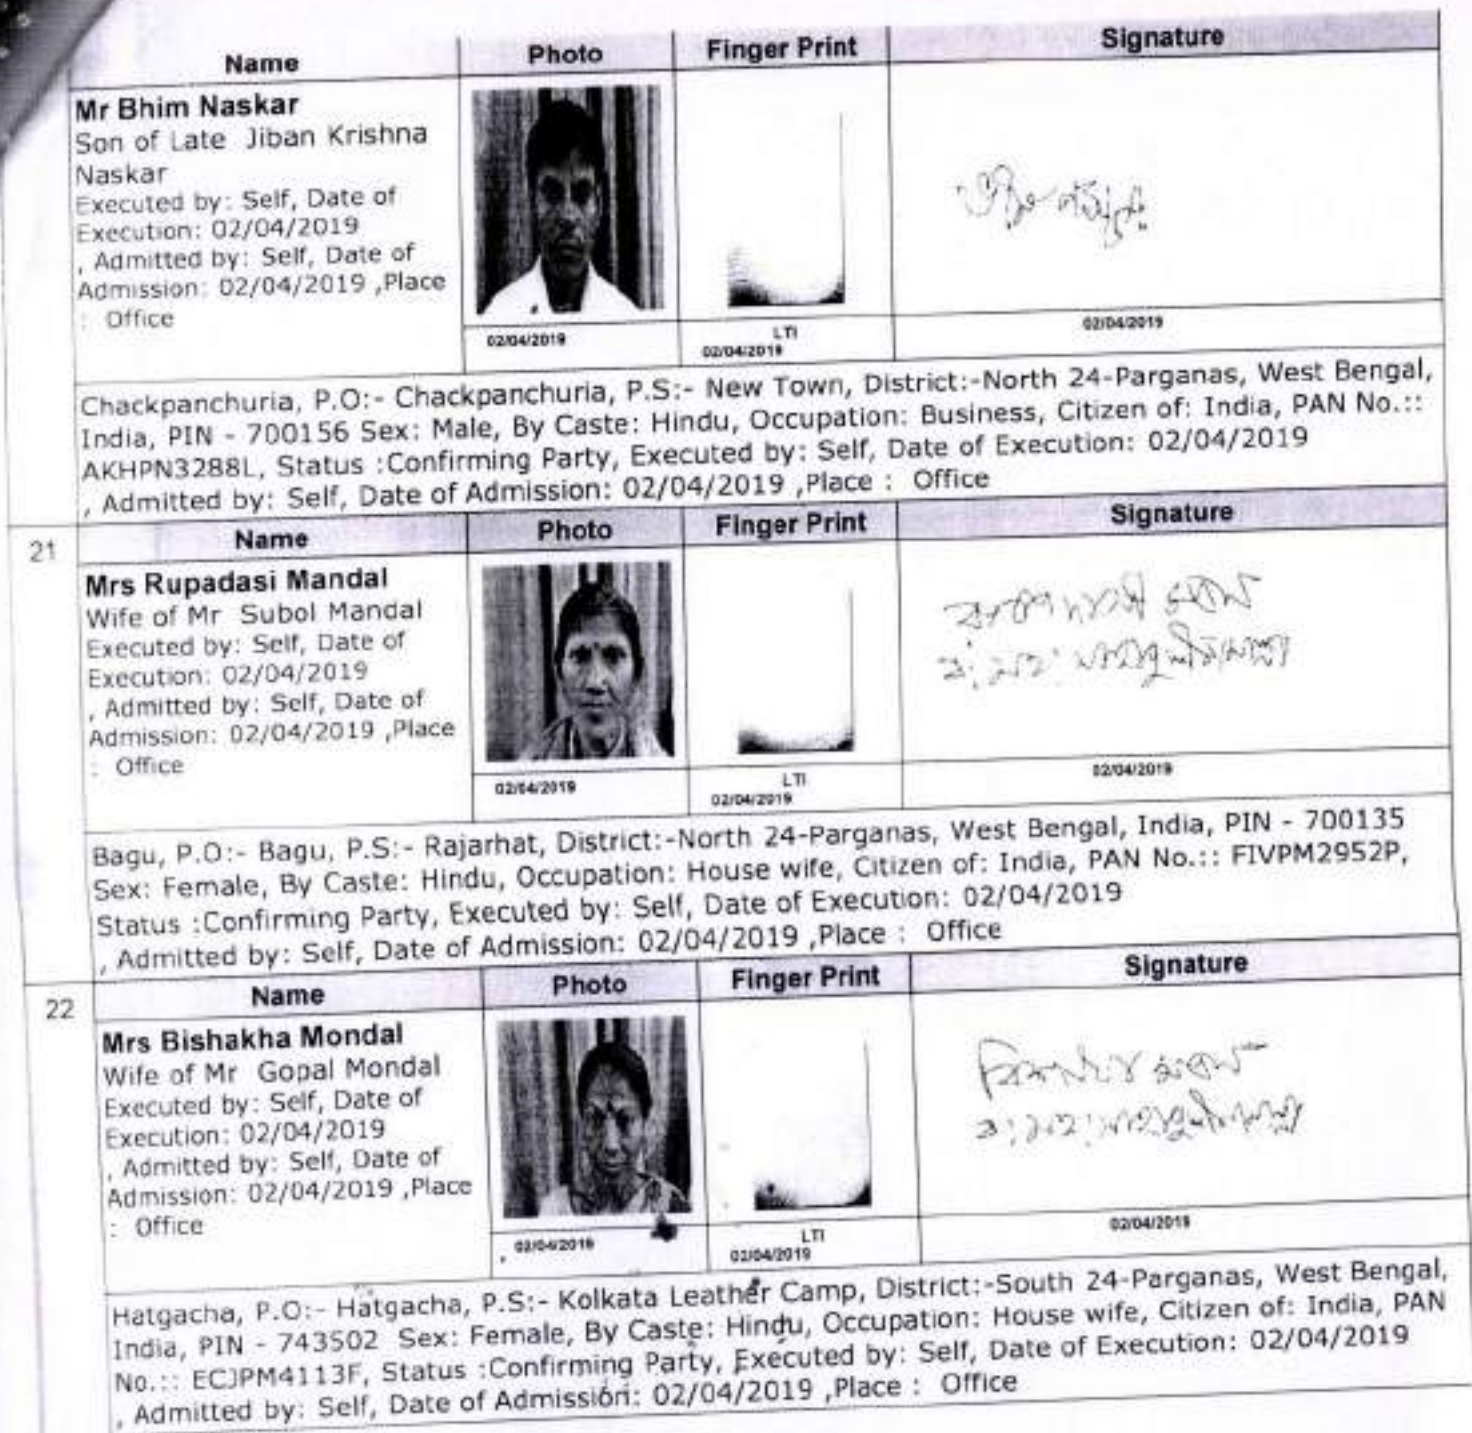 Name Photo Finger Print Signature
Mr Bhim Naskar
Son of Late Jiban Krishna
Naskar
Executed by: Self, Date of
Execution: 02/04/2019
, Admitted by: Self, Date of
Admission: 02/04/2019 ,Place
: Office
ভীম নস্কর
02/04/2019 LTI 02/04/2019
02/04/2019
Chackpanchuria, P.O:- Chackpanchuria, P.S:- New Town, District:-North 24-Parganas, West Bengal,
India, PIN - 700156 Sex: Male, By Caste: Hindu, Occupation: Business, Citizen of: India, PAN No.::
AKHPN3288L, Status :Confirming Party, Executed by: Self, Date of Execution: 02/04/2019
, Admitted by: Self, Date of Admission: 02/04/2019 ,Place : Office
21 Name Photo Finger Print Signature
Mrs Rupadasi Mandal
Wife of Mr Subol Mandal
Executed by: Self, Date of
Execution: 02/04/2019
, Admitted by: Self, Date of
Admission: 02/04/2019 ,Place
: Office
রুপদাসী মণ্ডল
02/04/2019 LTI 02/04/2019
02/04/2019
Bagu, P.O:- Bagu, P.S:- Rajarhat, District:-North 24-Parganas, West Bengal, India, PIN - 700135
Sex: Female, By Caste: Hindu, Occupation: House wife, Citizen of: India, PAN No.:: FIVPM2952P,
Status :Confirming Party, Executed by: Self, Date of Execution: 02/04/2019
, Admitted by: Self, Date of Admission: 02/04/2019 ,Place : Office
22 Name Photo Finger Print Signature
Mrs Bishakha Mondal
Wife of Mr Gopal Mondal
Executed by: Self, Date of
Execution: 02/04/2019
, Admitted by: Self, Date of
Admission: 02/04/2019 ,Place
: Office
বিশাখা মণ্ডল
02/04/2019 LTI 02/04/2019
02/04/2019
Hatgacha, P.O:- Hatgacha, P.S:- Kolkata Leather Camp, District:-South 24-Parganas, West Bengal,
India, PIN - 743502 Sex: Female, By Caste: Hindu, Occupation: House wife, Citizen of: India, PAN
No.:: ECJPM4113F, Status :Confirming Party, Executed by: Self, Date of Execution: 02/04/2019
, Admitted by: Self, Date of Admission: 02/04/2019 ,Place : Office